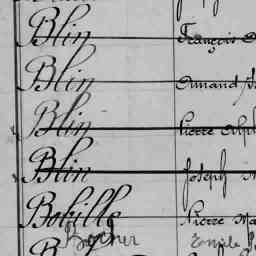 Blin François
Blin Amand
Blin Pierre
Blin Joseph
Bobille Pierre
Bocher Emile